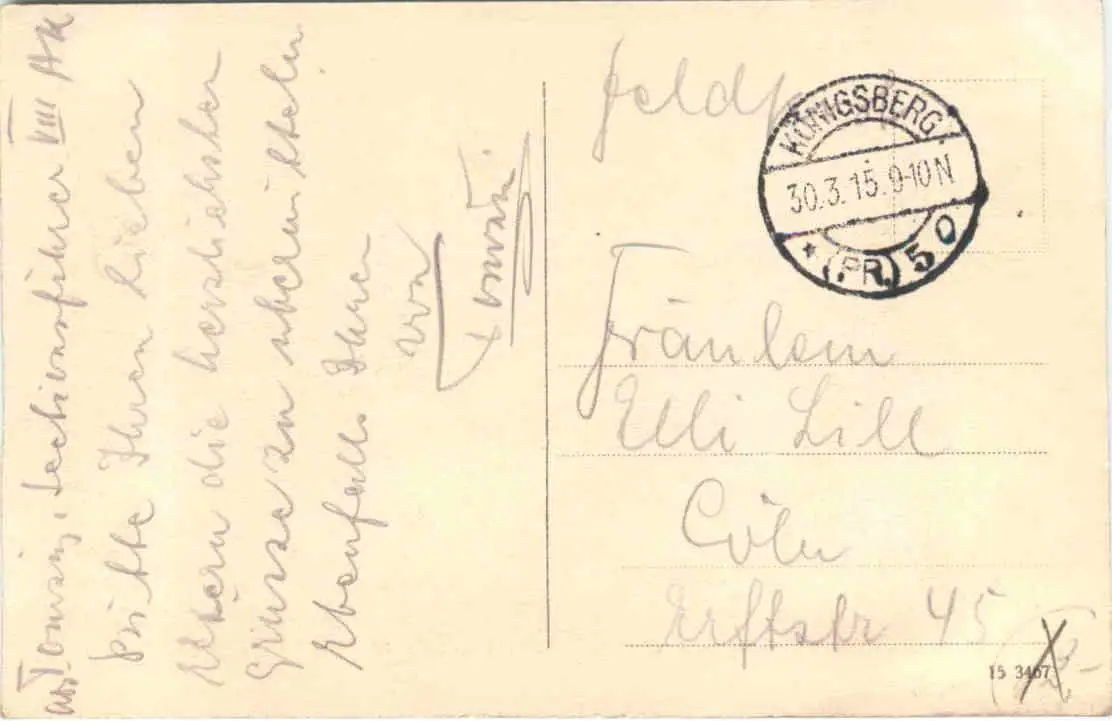 Abs. Tomsin, Sectionsführer VIII AK
Bitte Ihren lieben
Eltern die herzlichsten
Grüsse zu übermitteln
Ebenfalls Ihnen
von
Tomsin.
Feldp
KÖNIGSBERG
30.3.15.9-10N
* (PR.) 5 0
Fräulein
Elli Lill
Cöln
Erftstr 45
15 3467